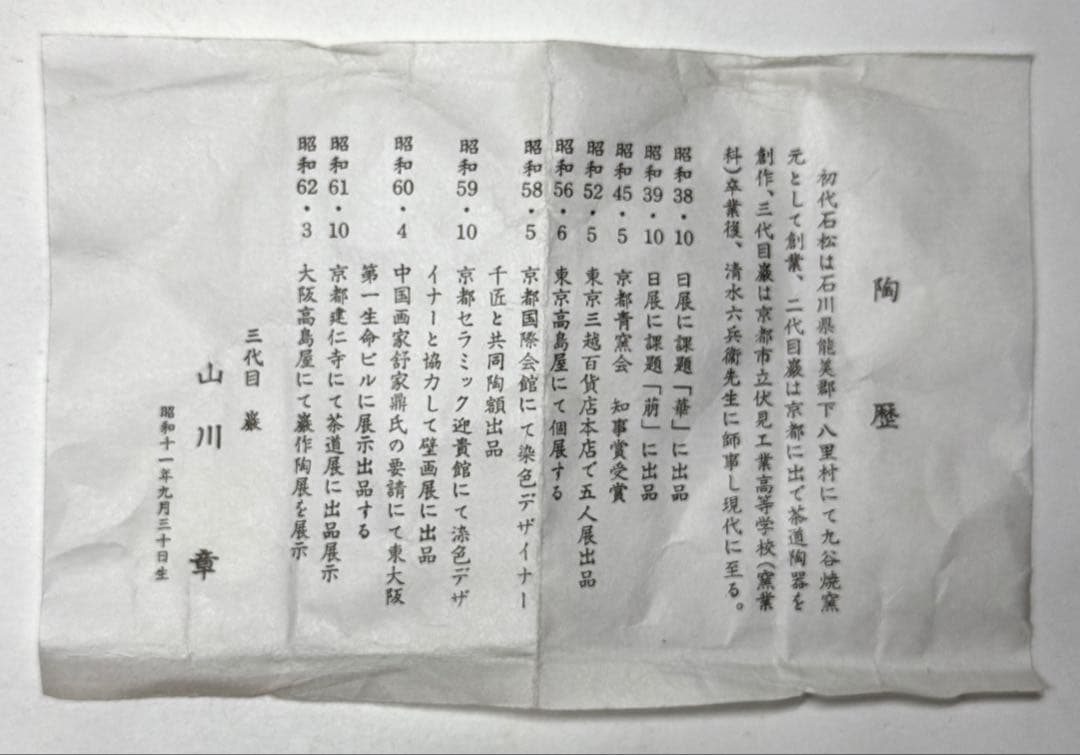 陶歴
初代石松は石川県能美郡下八里村にて九谷焼窯
元として創業、二代目巌は京都に出で茶道陶器を
創作、三代目巌は京都市立伏見工業高等学校(窯業
科)卒業後、清水六兵衛先生に師事し現代に至る。
昭和38・10 日展に課題「華」に出品
昭和39・10 日展に課題「萠」に出品
昭和45・5 京都青窯会 知事賞受賞
昭和52・5 東京三越百貨店本店で五人展出品
昭和56・6 東京高島屋にて個展する
昭和58・5 京都国際会館にて染色デザイナー
千匠と共同陶額出品
昭和59・10 京都セラミック迎貴館にて染色デザ
イナーと協力して壁画展に出品
昭和60・4 中国画家舒家鼎氏の要請にて東大阪
第一生命ビルに展示出品する
昭和61・10 京都建仁寺にて茶道展に出品展示
昭和62・3 大阪高島屋にて巌作陶展を展示
三代目 巌
山川 章
昭和十一年九月三十日生